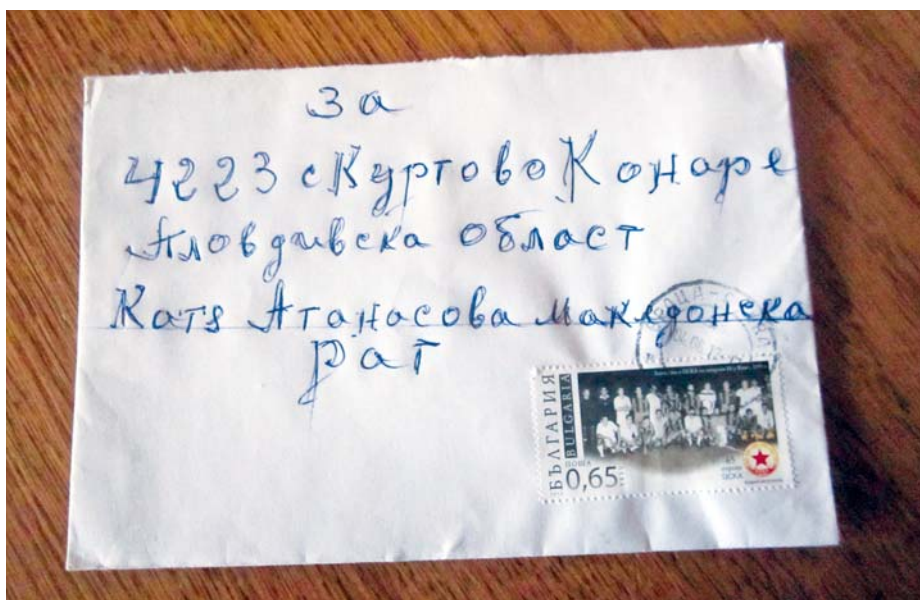 За
4223 с Куртово Конаре
Пловдивска област
Катя Атанасова Македонска
рат
БЪЛГАРИЯ
BULGARIA
ПОЩА
0,65
65
години
ЦСКА